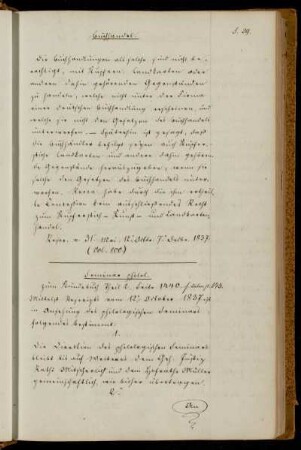 S. 29.
Buchhandel.
Die Buchhandlungen als solche sind nicht be-
rechtigt, mit Büchern, Landkarten oder
andern dahin gehörenden Gegenständen
zu handeln, welche nicht unter der Firma
einer deutschen Buchhandlung erscheinen, und
welche sie nicht den Gesetzen des Buchhandels
unterwerfen. — Späterhin ist gesagt, daß
die Buchhändler befugt seyen auch Kupfer-
stiche Landkarten und andere dahin gehören-
de Gegenstände herauszugeben, wenn sie
solche den Gesetzen des Buchhandels unter-
werfen. Keiner habe durch die ihm ertheil-
te Concession kein ausschließendes Recht
zum Kupferstich- Kunst- und Landkarten-
handel.
Rescr. v. 31. Mai, 12. Octbr. 7. Decbr. 1837
(Vol. 100)
Seminar philol.
zum Theil 2. Seite 1440.
Mittelst Rescripts vom 12. October 1837 ist
in Ansehung des philologischen Seminars
folgendes bestimmt:
1.
Die Direction des philologischen Seminars
bleibt bis auf Weiteres dem Geh. Justiz
Rathe Mitscherlich und dem Hofrathe Müller
gemeinschaftlich, wie bisher übertragen.
2.